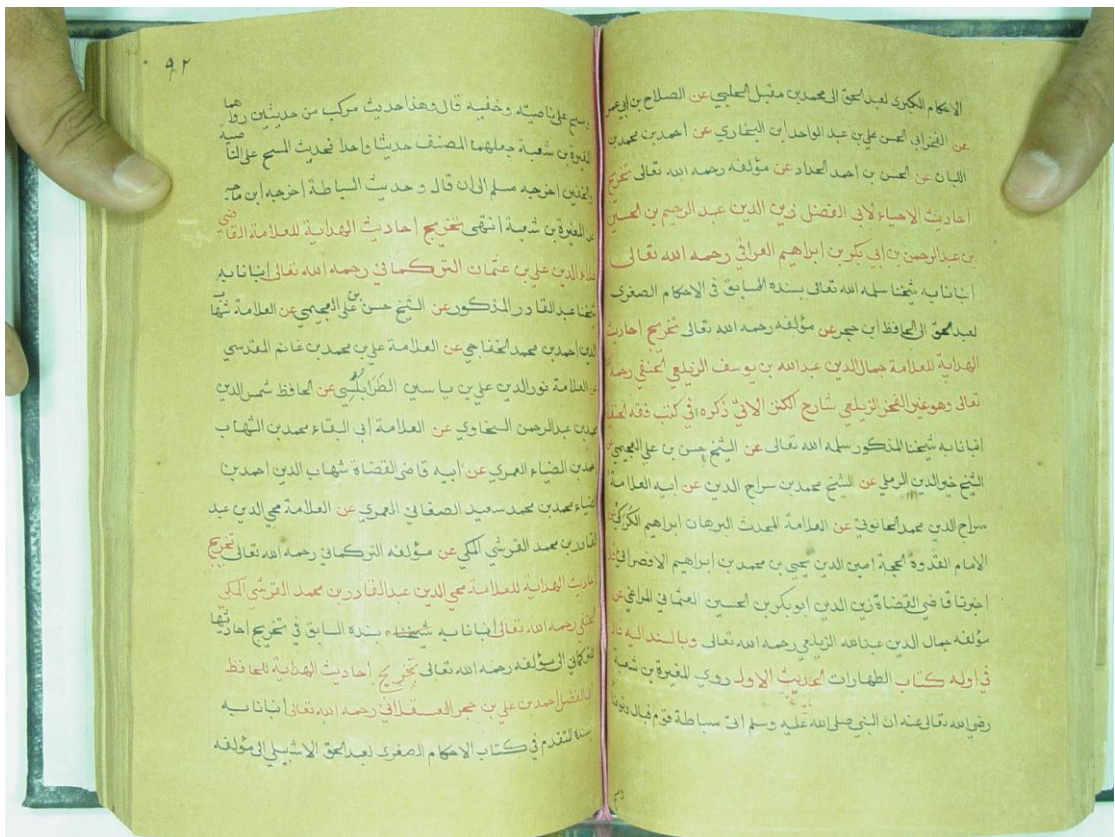 الاحكام الكبرى لعبد الحق الى محمد بن مقبل الحلبي عن الصلاح بن ابي عمر
عن الفخر ابي الحسن علي بن عبد الواحد ابن البخاري عن احمد بن محمد بن
اللبان عن الحسن بن احمد الحداد عن مؤلفه رحمه الله تعالى تخريج
احاديث الاحياء لابي الفضل زين الدين عبد الرحيم بن الحسين
بن عبد الرحمن بن ابي بكر بن ابراهيم العراقي رحمه الله تعالى
انبانا به شيخنا سلمه الله تعالى بسنده السابق في الاحكام الصغرى
لعبد الحق الى الحافظ ابن حجر عن مؤلفه رحمه الله تعالى تخريج احاديث
الهداية للعلامة جمال الدين عبد الله بن يوسف الزيلعي الحنفي رحمه
تعالى وهو غير الفخر الزيلعي شارح الكنز الاتي ذكره في كتب فقه
انبانا به شيخنا المذكور سلمه الله تعالى عن الشيخ حسن بن علي العجيمي عن
الشيخ خير الدين الرملي عن الشيخ محمد بن سراج الدين عن ابيه العلامة
سراج الدين محمد الحانوتي عن العلامة المحدث البرهان ابراهيم الكركي عن
الامام القدوة الحجة امين الدين يحيى بن محمد بن ابراهيم الاقصرائي
اخبرنا قاضي القضاة زين الدين ابو بكر بن الحسين العثماني المراغي عن
مؤلفه جمال الدين عبد الله الزيلعي رحمه الله تعالى وبالسند اليه قال
في اوله كتاب الطهارات الحديث الاول روى المغيرة بن شعبة
رضي الله تعالى عنه ان النبي صلى الله عليه وسلم اتى سباطة قوم فبال وتوضا
٩٢
ومسح على ناصيته وخفيه قال وهذا حديث مركب من حديثين رواهما
المغيرة بن شعبة جعلهما المصنف حديثا واحدا فحديث المسح على الناصية
والخفين اخرجه مسلم الى ان قال وحديث السباطة اخرجه ابن ماجه
عن المغيرة بن شعبة انتهى تخريج احاديث الهداية للعلامة القاضي
علاء الدين علي بن عثمان التركماني رحمه الله تعالى انبانا به
شيخنا عبد القادر المذكور عن الشيخ حسن بن علي العجيمي عن العلامة شهاب
الدين احمد بن محمد الخفاجي عن العلامة علي بن محمد بن غانم المقدسي
عن العلامة نور الدين علي بن ياسين الطرابلسي عن الحافظ شمس الدين
محمد بن عبد الرحمن السخاوي عن العلامة ابي البقاء محمد بن الشهاب
احمد بن الضياء العمري عن ابيه قاضي القضاة شهاب الدين احمد بن
الضياء محمد بن محمد سعيد الصغاني العمري عن العلامة محي الدين عبد
القادر بن محمد القرشي المكي عن مؤلفه التركماني رحمه الله تعالى تخريج
احاديث الهداية للعلامة محي الدين عبد القادر بن محمد القرشي المكي
الحنفي رحمه الله تعالى انبانا به شيخنا بسنده السابق في تخريج احاديثها
للتركماني الى مؤلفه رحمه الله تعالى تخريج احاديث الهداية للحافظ
ابي الفضل احمد بن علي بن حجر العسقلاني رحمه الله تعالى انبانا به
بسنده المتقدم في كتاب الاحكام الصغرى لعبد الحق الاشبيلي الى مؤلفه